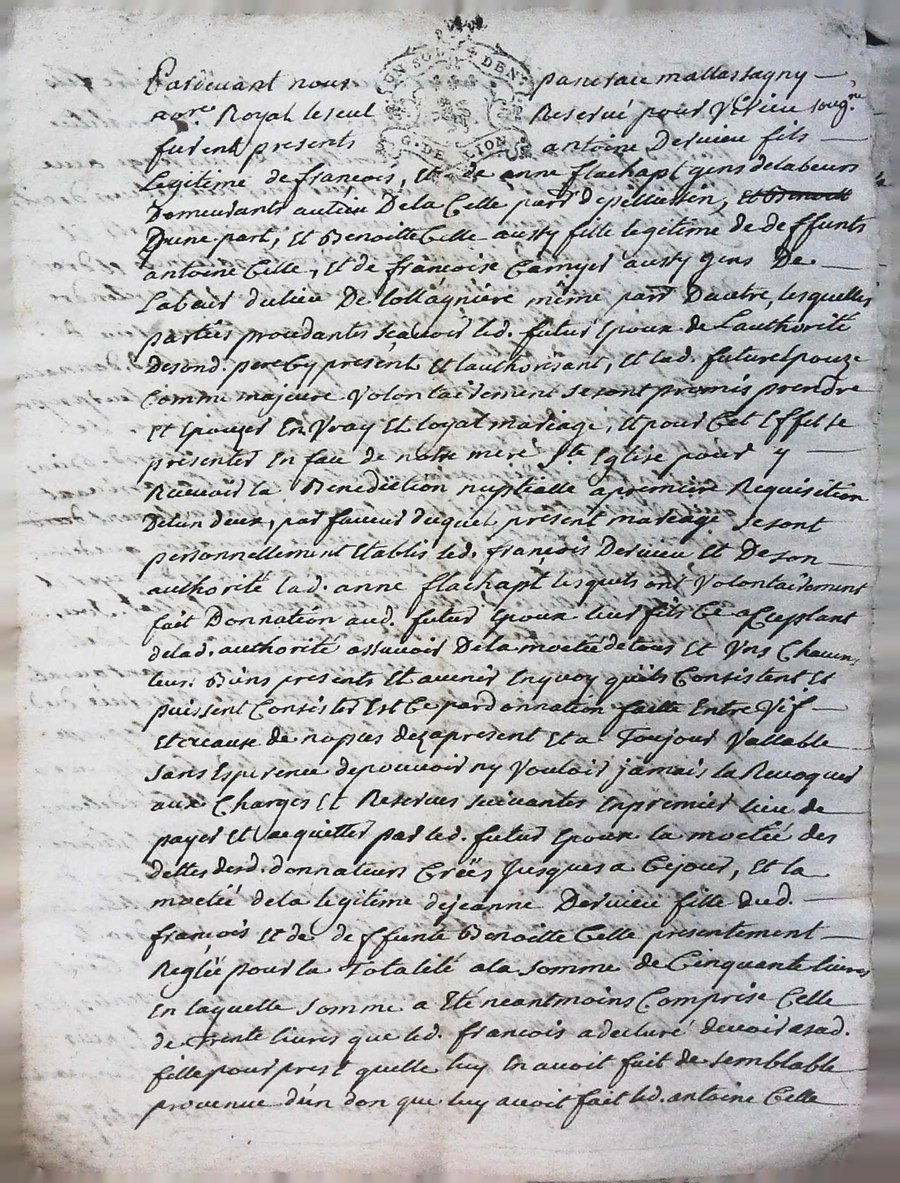 Pardevant nous pancrace mallassagny
nore. Royal le seul Reservé pour Virieu soug.né
furent presents antoine Dervieu fils
Legitime de françois, Et de anne flachapt gens de labeurs
Demeurants au lieu De la Celle parr. De pellussin, Et Benoitt
Dune part, Et Benoitte Celle aussy fille legitime de deffunts
antoine Celle, Et de françoise Carnyer aussy gens De
Labeur du lieu De Collagniere même parr. Dautre, lesquelles
parties procedantes sçauoir led. futur Epoux de Lauthorité
de sond. pere Cy present Et lauthorisant, Et lad. future Epouze
Comme majeure Volontairement se sont promis prendre
Et Epouzer En Vray Et loyal mariage, Et pour Cet Effet se
presenter En face de notre mere Ste. Eglise pour y
Receuoir la Benediction nuptialle a premiere Requisition
De lun deux, par faueur duquel present mariage se sont
personnellement Etablis led. françois Dervieu Et De son
authorité lad. anne flachapt lesquels ont Volontairement
fait Donnation aud. futur Epoux leur fils Ce acceptant
de lad. authorité assauoir De la moetié de tous Et Vns Chacuns
leurs Biens presents Et auenir En quoy quils Consistent Et
puissent Consister Est Ce par donnation faitte Entre Vif
Et a Cause de nopces dez a present Et a Toujour Vallable
sans Esperence de pouuoir ny Vouloir jamais la Reuoquer
aux Charges Et Reserues suiuantes En premier lieu de
payer Et acquitter par led. futur Epoux la moetié des
dettes desd. donnateurs Crëes jusques a Cejour, Et la
moetié de la legitime de jeanne Dervieu fille dud.
françois Et de deffunte Benoitte Celle presentement
Reglée pour la Totalité a la somme de Cinquante liures
En laquelle somme a Eté neantmoins Comprise Celle
de Trente liures que led. françois a declaré deuoir a sad.
fille pour prest quelle luy En auoit fait de semblable
prouenue d'un don que luy auoit fait led. antoine Celle